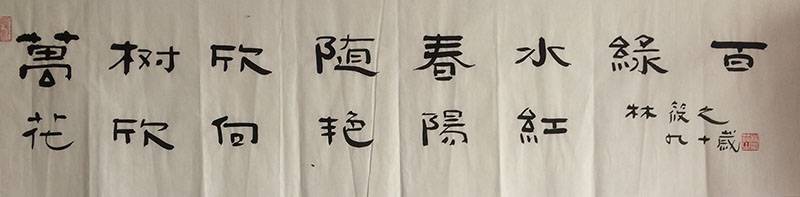 萬树欣随春水綠百
花欣向艳陽紅
林筱之
九十歲